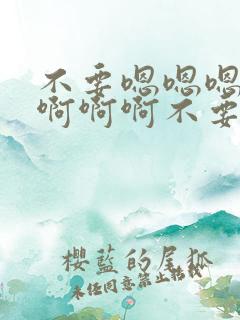 不要嗯嗯嗯
啊啊啊不要
櫻藍的尾狐
未任同意禁止转载